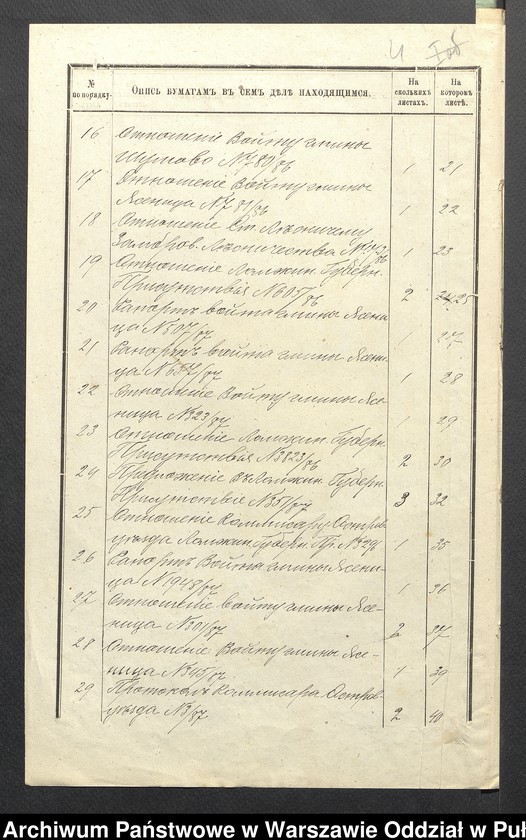 № по порядку.
Опись бумагамъ въ семъ дѣлѣ находящимся.
На сколькихъ листахъ.
На которомъ листѣ.
16 Отношеніе Войту гмины
Шумово № 789/86 1 21
17 Отношеніе Войту гмины
Ясеница № 781/86 1 22
18 Отношеніе Ст. Лѣсничему
Лѣсничества 1 23
19 Отношеніе Ломжин. Губерн.
Присутствія № 605/86 2 25
20 Рапортъ войта гмины Ясени-
ца № 507/87 1 27
21 Рапортъ войта гмины Ясени-
ца 1 28
22 Отношеніе Войту гмины Ясе-
ница № 23/87 1 29
23 Отношеніе Ломжин. Губерн.
Присутствія № 3823/86 2 30
24 Предложеніе Ломжин. Губерн.
Присутствіе № 351/87 3 32
25 Отношеніе Коммисару Остров.
уѣзда Ломжин. Губерн. Пр. 1 35
26 Рапортъ Войта гмины Ясени-
ца № 1948/87 1 36
27 Отношеніе войту гмины Ясе-
ница № 301/87 2 37
28 Отношеніе Войту гмины Ясе-
ница № 345/87 1 39
29 Протоколъ Коммисара Остров.
уѣзда № 3/87 2 40
Archiwum Państwowe w Warszawie Oddział w Puł